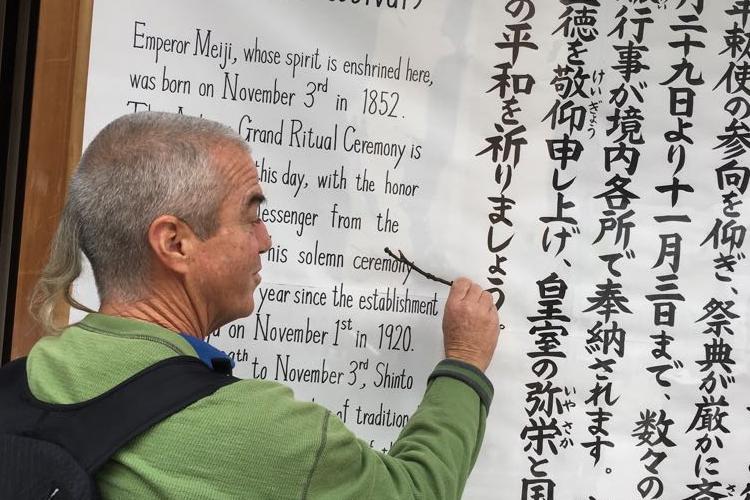 Emperor Meiji, whose spirit is enshrined here,
was born on November 3rd in 1852.
Grand Ritual Ceremony is
this day, with the honor
from the
his solemn ceremony
year since the establishment
on November 1st in 1920.
to November 3rd, Shinto
of tradition
勅使の参向を仰ぎ、祭典が厳かに
月二十九日より十一月三日まで、数々の
行事が境内各所で奉納されます。
徳を敬仰申し上げ、皇室の弥栄と国
の平和を祈りましょう。